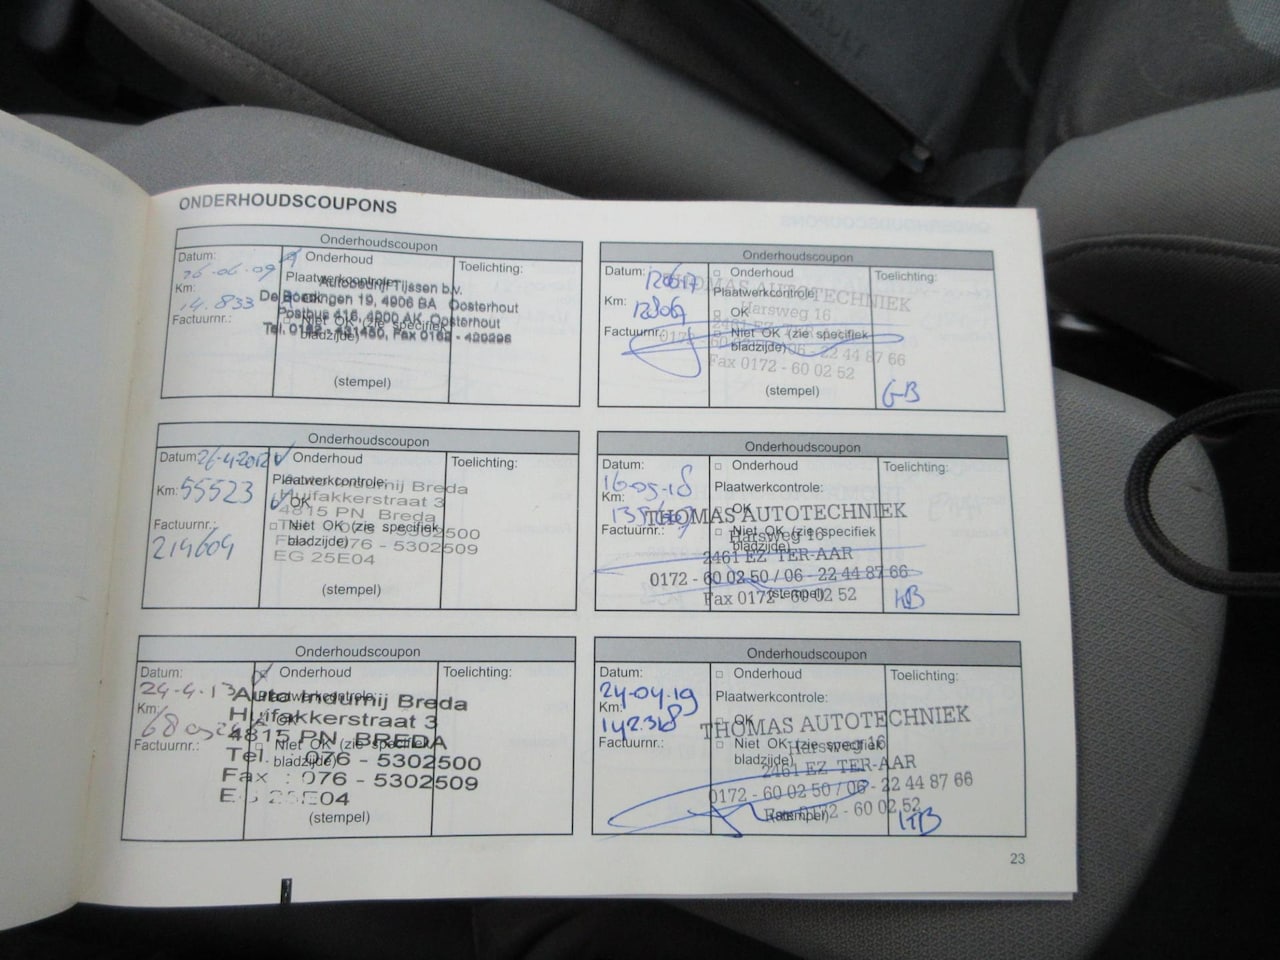 ONDERHOUDSCOUPONS
Onderhoudscoupon
Datum:
26-06-09
Onderhoud
Toelichting:
Km:
14.833
Plaatwerkcontrole:
Autobedrijf Tijssen b.v.
De Boedingen 19, 4906 BA Oosterhout
Factuurnr.:
Postbus 416, 4900 AK Oosterhout
Niet OK (zie specifiek
bladzijde)
(stempel)
Onderhoudscoupon
Datum:
26-4-2012
Onderhoud
Toelichting:
Km:
55523
Plaatwerkcontrole:
Auto Indumij Breda
Huifakkerstraat 3
OK
4815 PN Breda
Factuurnr.:
214604
Niet OK (zie specifiek
bladzijde)
076 - 5302509
EG 25E04
(stempel)
Onderhoudscoupon
Datum:
24-4-13
Onderhoud
Toelichting:
Km:
Plaatwerkcontrole:
Auto Indumij Breda
Huifakkerstraat 3
OK
4815 PN BREDA
Factuurnr.:
Niet OK (zie specifiek
bladzijde)
Tel. : 076 - 5302500
Fax : 076 - 5302509
EG 25E04
(stempel)
Onderhoudscoupon
Datum:
Onderhoud
Toelichting:
Km:
Plaatwerkcontrole:
THOMAS AUTOTECHNIEK
Harsweg 16
OK
Factuurnr.:
Niet OK (zie specifiek
bladzijde)
06 - 22 44 87 66
Fax 0172 - 60 02 52
(stempel)
GB
Onderhoudscoupon
Datum:
16-05-18
Onderhoud
Toelichting:
Km:
Plaatwerkcontrole:
OK
THOMAS AUTOTECHNIEK
Factuurnr.:
Niet OK (zie specifiek
bladzijde)
Harsweg 16
2461 EZ TER-AAR
0172 - 60 02 50 / 06 - 22 44 87 66
Fax 0172 - 60 02 52
(stempel)
Onderhoudscoupon
Datum:
24-04-19
Onderhoud
Toelichting:
Km:
142.318
Plaatwerkcontrole:
OK
THOMAS AUTOTECHNIEK
Factuurnr.:
Niet OK (zie specifiek
bladzijde)
Harsweg 16
2461 EZ TER-AAR
0172 - 60 02 50 / 06 - 22 44 87 66
Fax 0172 - 60 02 52
(stempel)
23